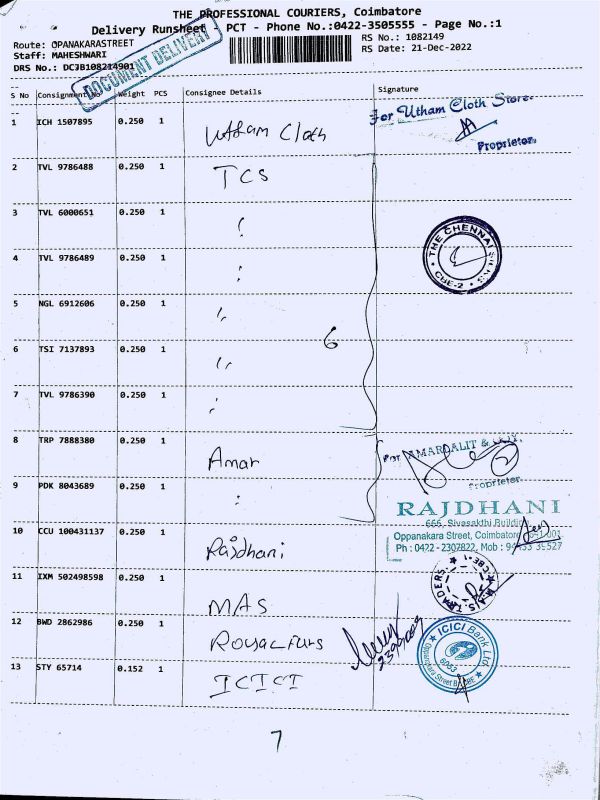 THE PROFESSIONAL COURIERS, Coimbatore
Delivery Runsheet PCT - Phone No.:0422-3505555 - Page No.:1
Route: OPANAKARASTREET RS No.: 1082149
Staff: MAHESHWARI RS Date: 21-Dec-2022
DRS No.: DCJB108214901
DOCUMENT DELIVERY
S No Consignment No Weight PCS Consignee Details Signature
1 ICH 1507895 0.250 1 Utham Cloth
For Utham Cloth Store.
Proprietor.
2 TVL 9786488 0.250 1 TCS
3 TVL 6000651 0.250 1
4 TVL 9786489 0.250 1
THE CHENNAI
CBE-2
5 NGL 6912606 0.250 1
6
6 TSI 7137893 0.250 1
7 TVL 9786390 0.250 1
8 TRP 7888380 0.250 1 Amar
Proprietor
9 PDK 8043689 0.250 1
RAJDHANI
666, Sivasakthi Building
Oppanakara Street, Coimbatore
Ph : 0422 - 2307822, Mob :
10 CCU 100431137 0.250 1 Rajdhani
11 IXM 502498598 0.250 1 MAS
TRADERS
CBE-1
12 BWD 2862986 0.250 1 Royal Furs
13 STY 65714 0.152 1 ICICI
ICICI Bank Ltd.
6053
7